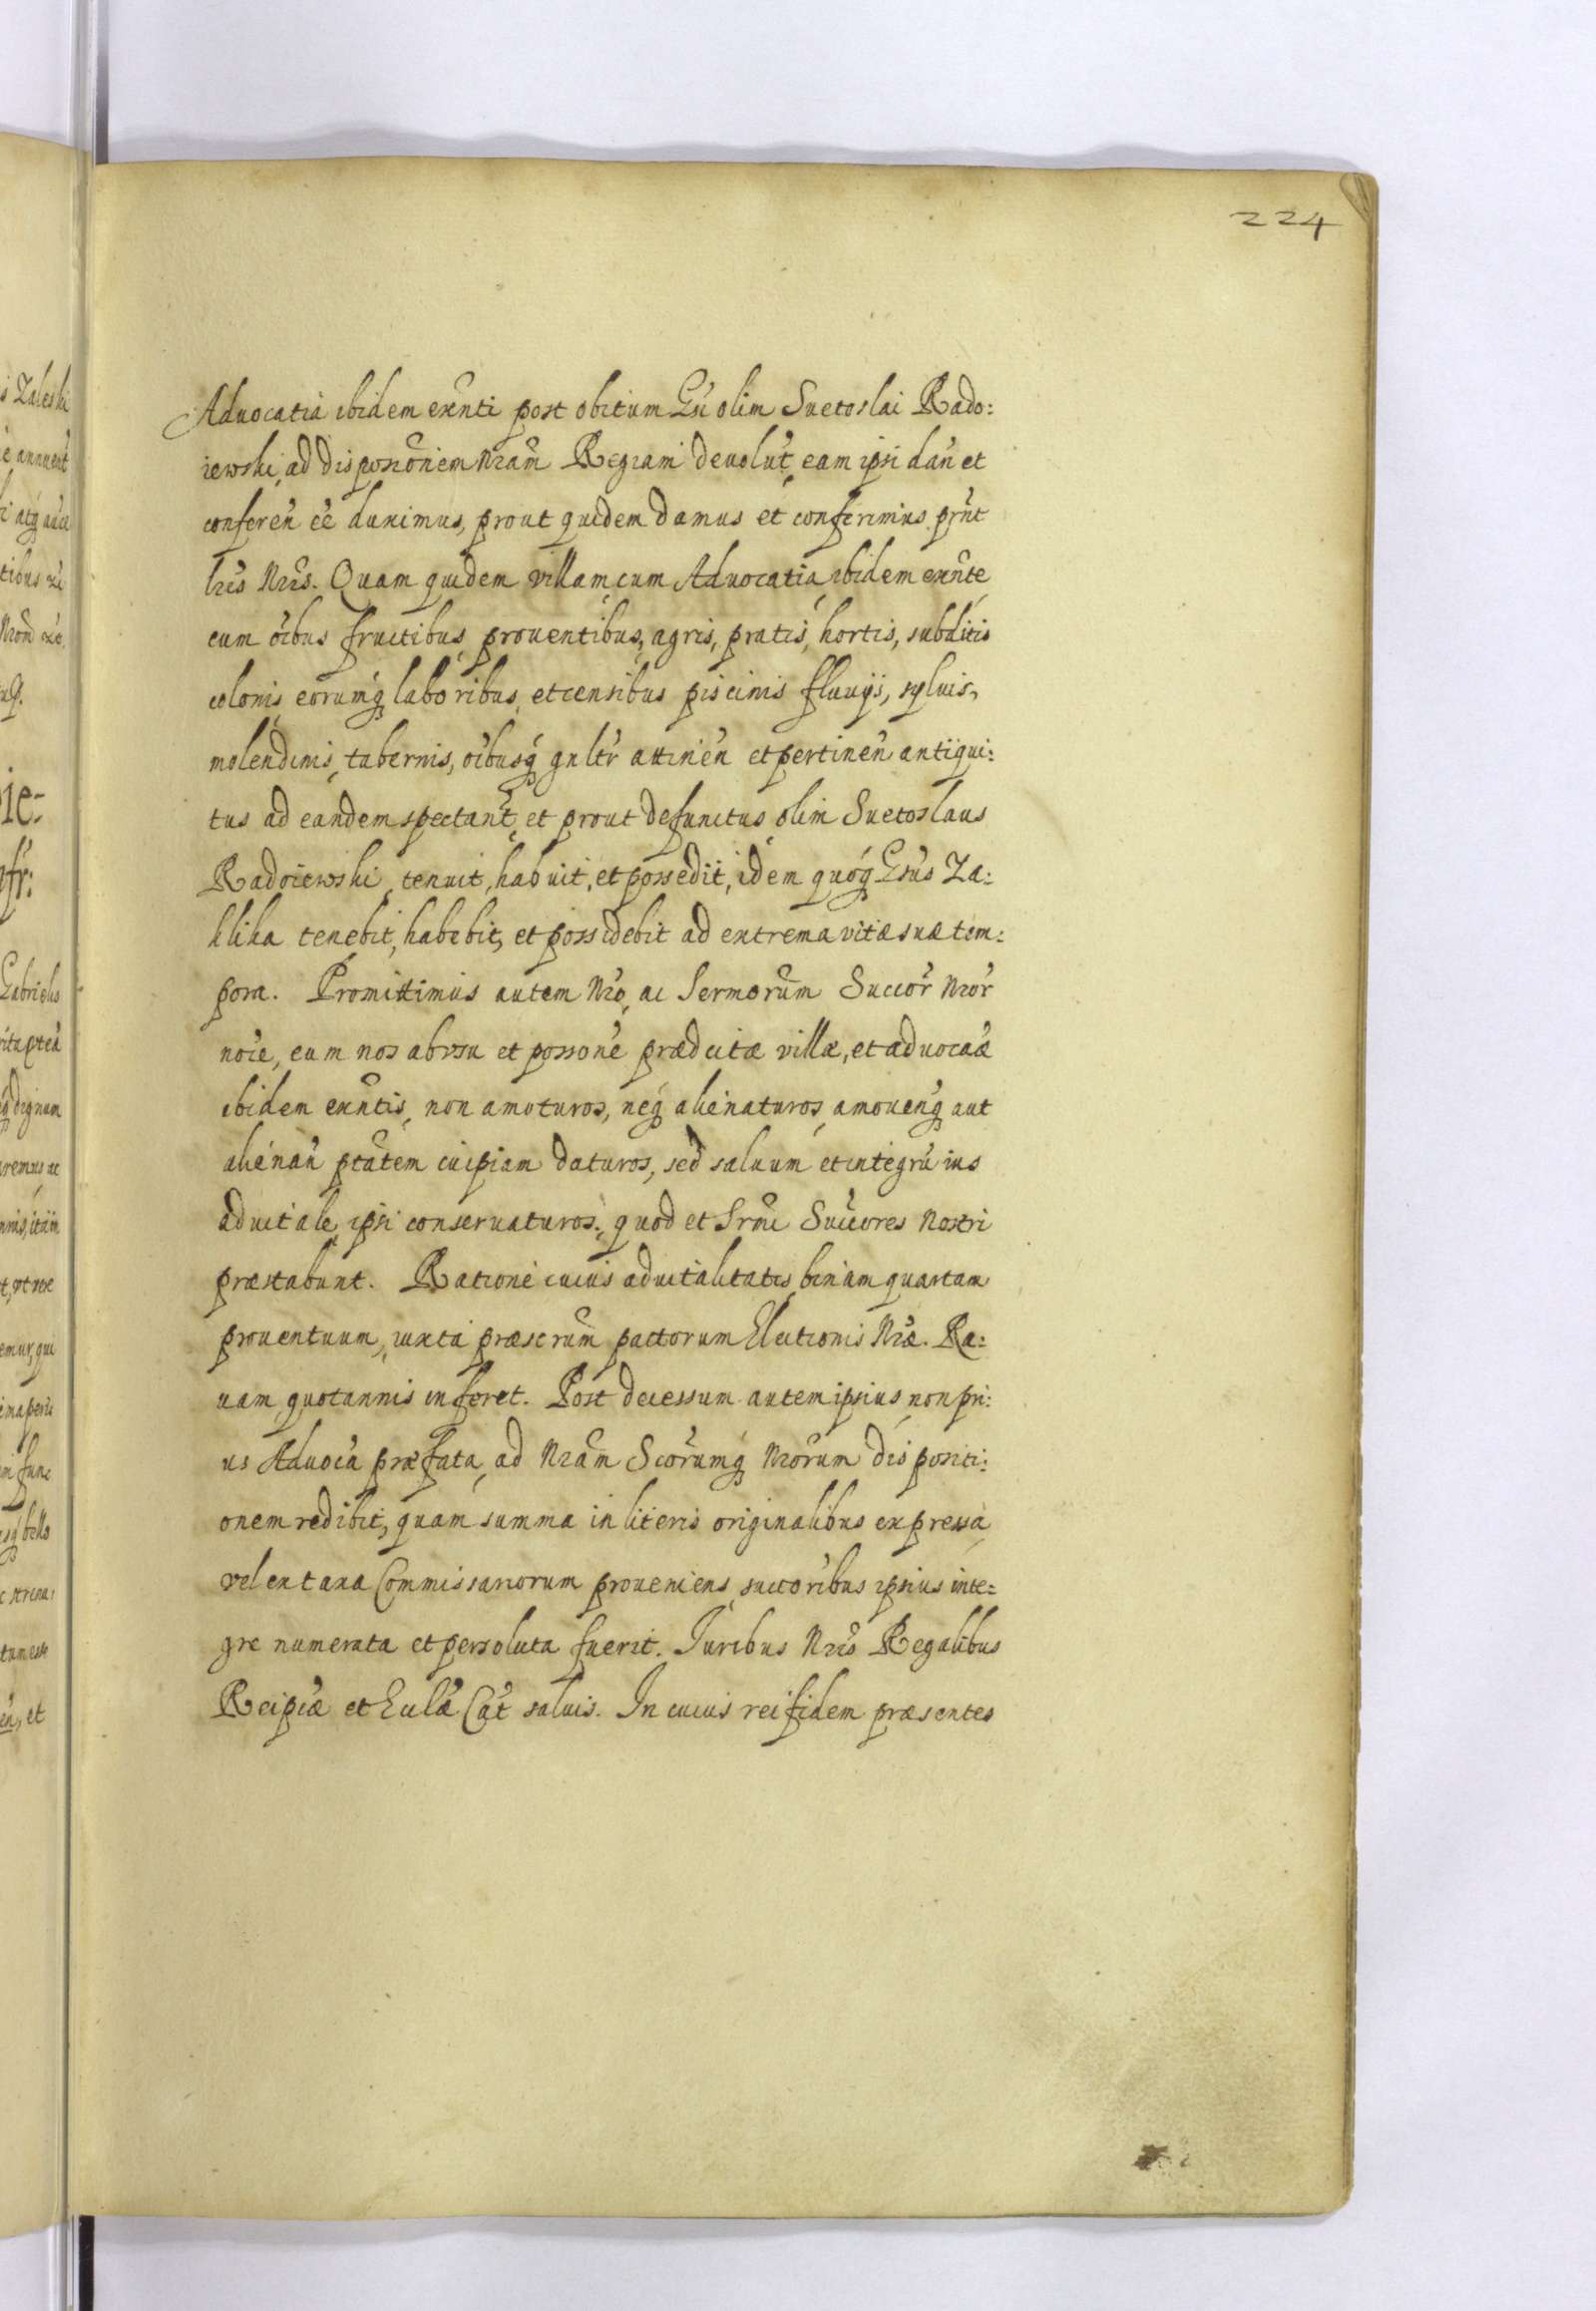 224
Aduocatia ibidem exñti post obitum Gsi olim Suetoslai Rado:
iewski, ad dispositioñem Nrãm Regiam deuolut̃, eam ipsi dañ et
conferen̄ eē duximus, prout quidem damus et conferimus pr̃nt
lr̃is Nr̃is. Quam quidem villam, cum Aduocatia ibidem exñte,
cum oĩbus fructibus, prouentibus, agris, pratis, hortis, subditis
colonis, eorumq́ laboribus, et censibus piscinis fluuijs, syluis,
molendinis, tabernis, oĩbusq́ gnltr̃ attineñ et pertineñ antiqui:
tus ad eandem spectant̃, et prout defunctus olim Suetoslaus
Radoiewski, tenuit, habuit, et possedit, idem quoq́ Gsus Za:
klika tenebit, habebit, et possidebit ad extrema vitæ suæ tem:
pora. Promittimus autem Nr̃o, ac Sermorum̃ Succor̃ Nror̃
noĩe, eum nos ab vsu et possonẽ prædictæ villæ, et aduocaæ̃
ibidem exñtis, non amoturos, neq́ alienaturos, amouenq́ aut
alienañ ptãtem cuipiam daturos, sed saluum et integrũ ius
aduitale, ipsi conseruaturos; quod et Srm̃i Succores Nostri
præstabunt. Ratione cuius aduitalitatis, binam quartam
prouentuum, iuxta præscrum̃ pactorum Electionis Nr̃æ. Ra:
uam, quotannis inferet. Post decessum autem ipsius, non pri:
us Aduocã præfata, ad Nrãm Scõrumq́ Nrõrum dispositi:
onem redibit, quam summa in literis originalibus expressa,
vel ex taxa Commissariorum proueniens, succõribus ipsius inte:
gre numerata et persoluta fuerit. Iuribus Nr̃is Regalibus
Reipcæ̃ et Eclæ̃ Cat̃ saluis. In cuius rei fidem præsentes